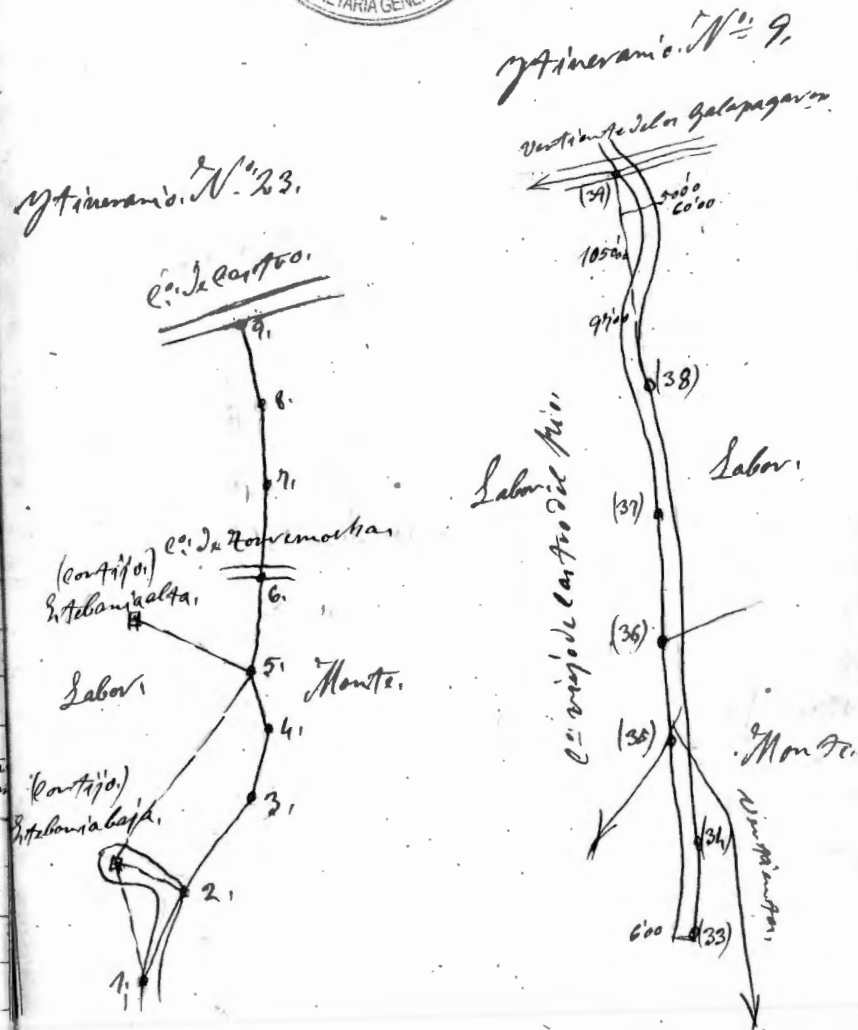 Ytinerario. Nº 23.
Cº. de Castro.
9.
8.
7.
Cº. de Torremocha.
6.
(Cortijo.)
Estebania alta.
5.
Labor.
Monte.
4.
3.
(Cortijo.)
Estebania baja.
2.
1.
Ytinerario. Nº 9.
Vertiente de los Galapagares
(39)
60'00
(38)
Labor.
Cº. viejo de Castro del Rio.
Labor.
(37)
(36)
(35)
Monte.
(34)
6'00
(33)